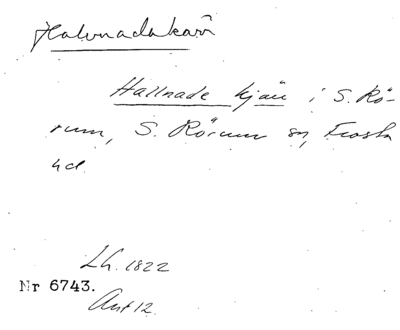 Halvnadakärr
Hallnade kjär i S. Rö-
rum, S. Rörum sn, Frosta
hd.
Lh. 1822
Nr 6743.
Ant 12.